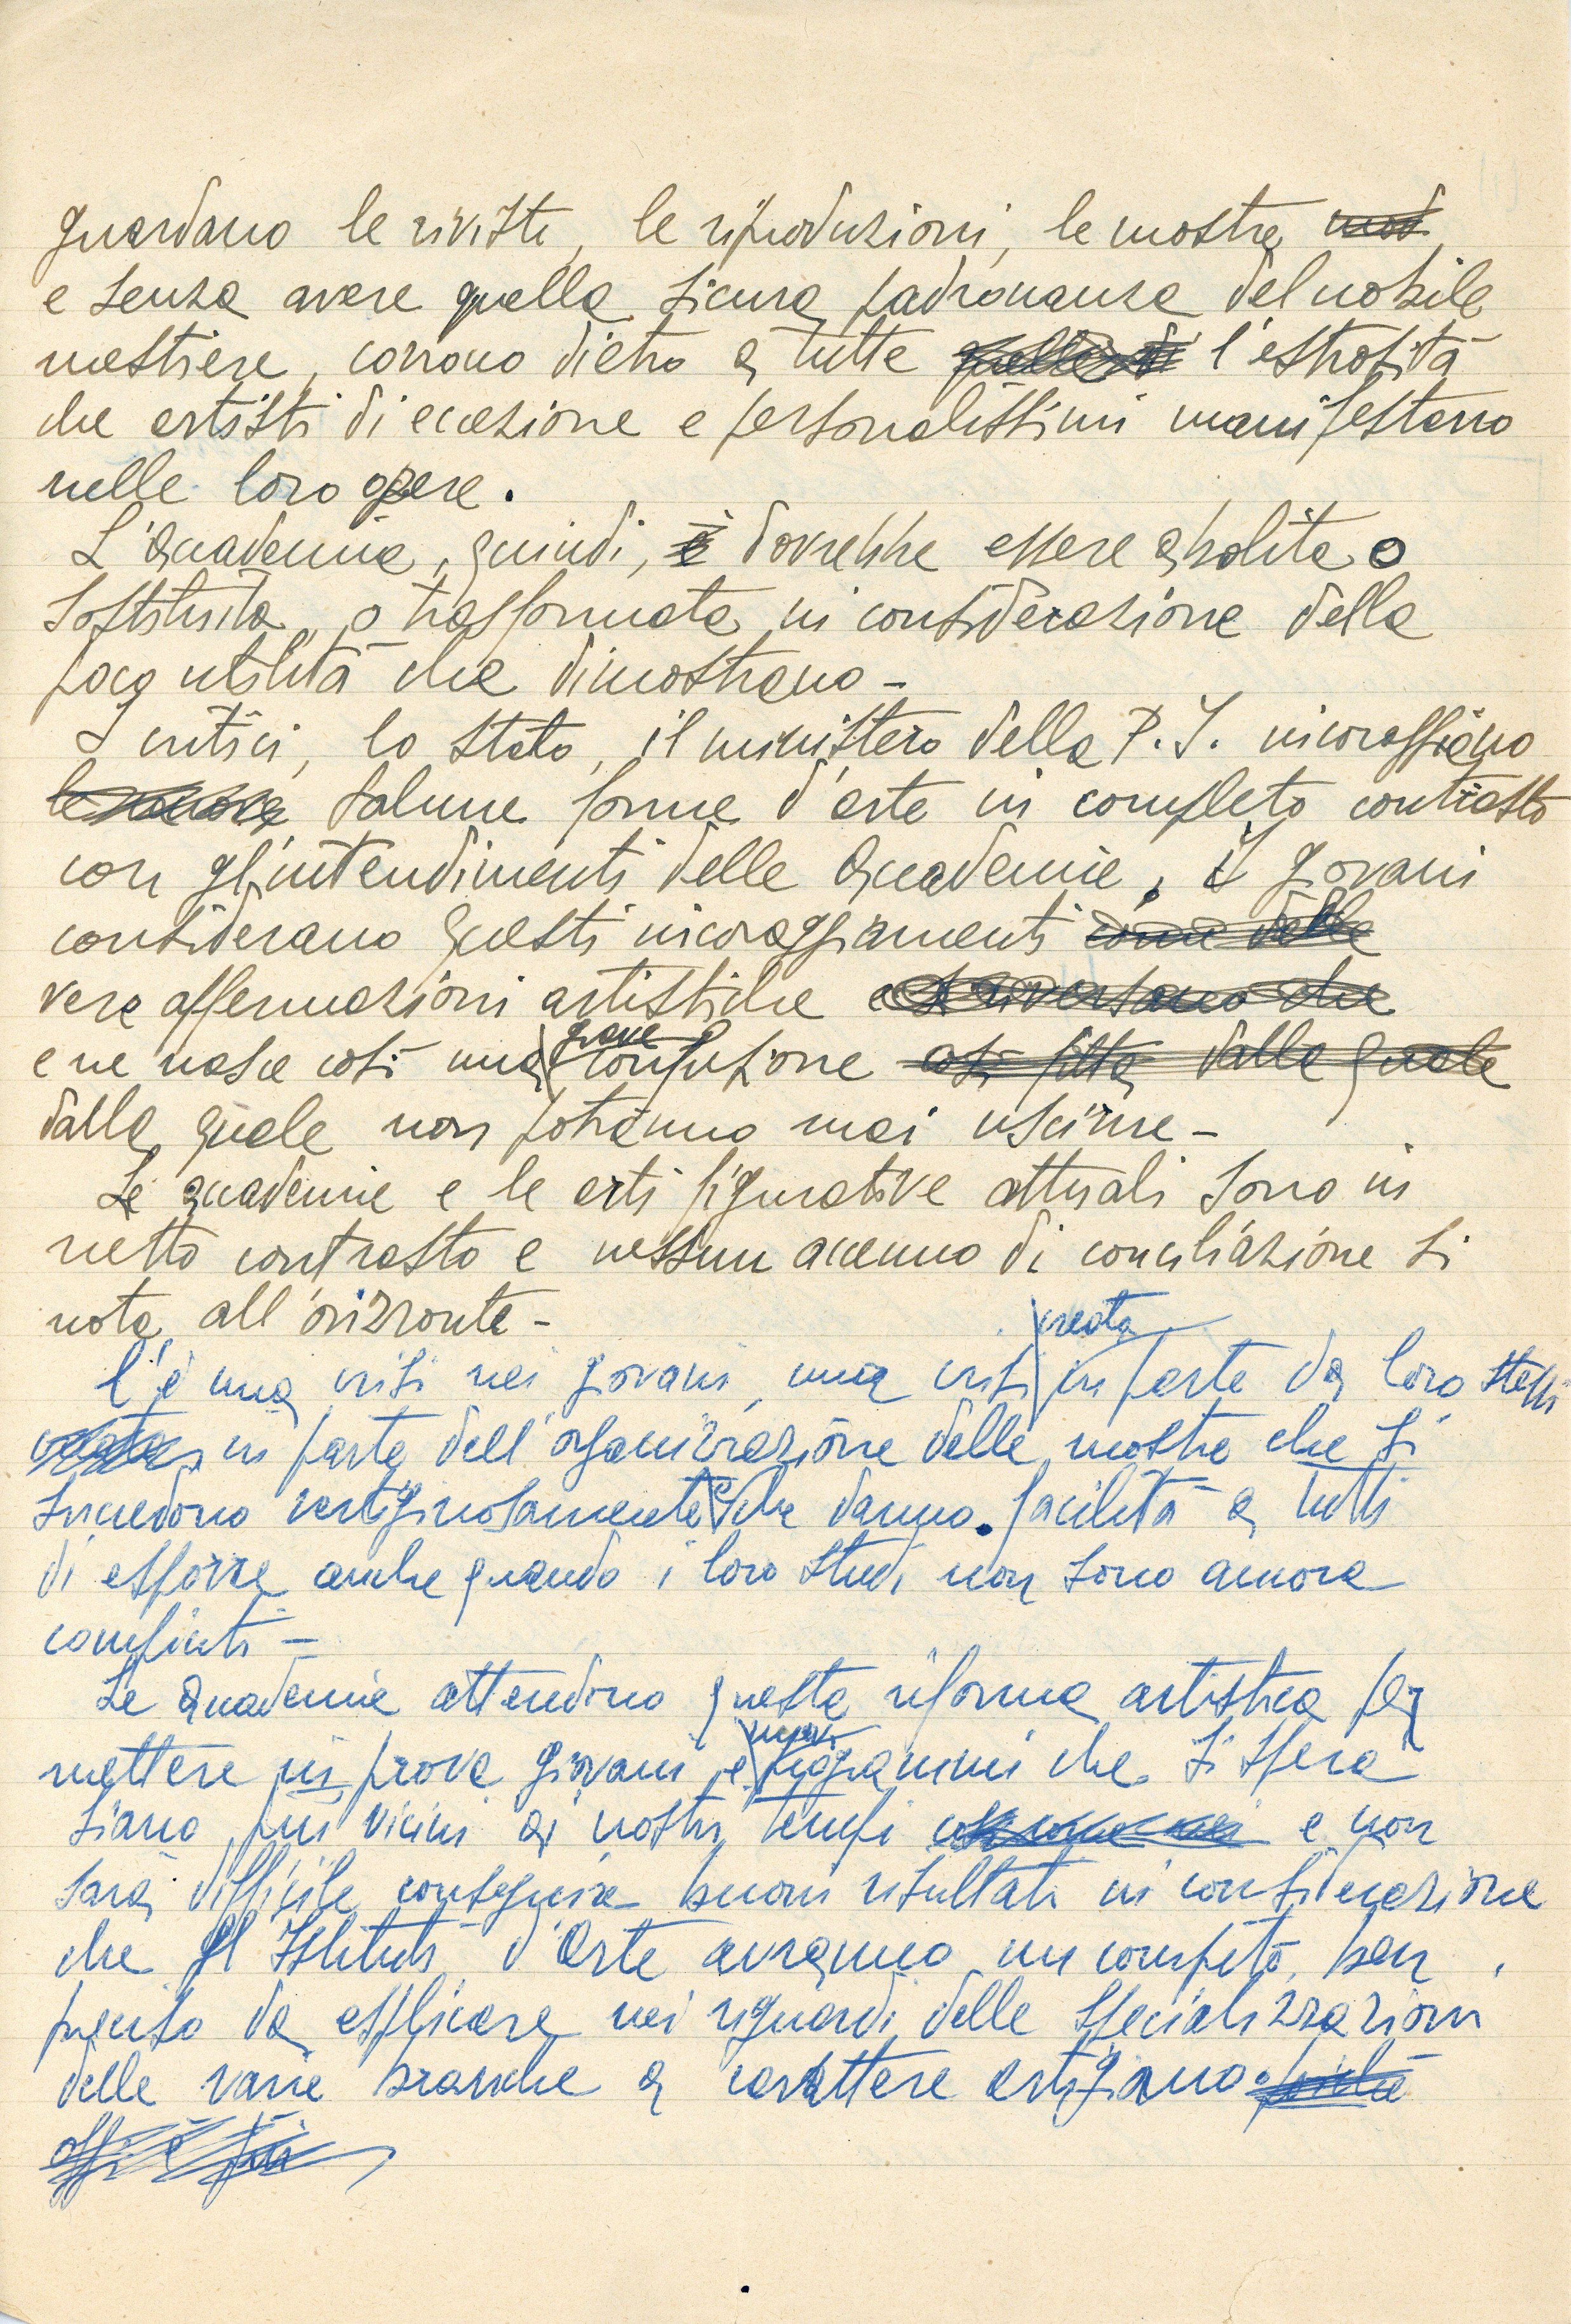 guardano le riviste, le riproduzioni, le mostre
e senza avere quella sicura padronanza del nobile
mestiere, corrono dietro a tutte l'estrosità
che artisti di eccezione e personalissimi manifestano
nelle loro opere.
L'Accademia, quindi, dovrebbe essere abolita o
sostituita o trasformata in considerazione della
poca utilità che dimostrano -
I critici, lo stato, il ministero della P.I. incoraggiano
talune forme d'arte in completo contrasto
con gl'intendimenti delle Accademie, i giovani
considerano questi incoraggiamenti come delle
vere affermazioni artistiche e si riversano che
e ne nasce così una grave confusione così fitta dalla quale
dalla quale non potranno mai uscirne -
Le accademie e le arti figurative attuali sono in
netto contrasto e nessun accenno di conciliazione si
nota all'orizzonte -
C'è una crisi nei giovani, una crisi creata in parte da loro stessi
creata in parte dell'organizzazione delle mostre che si
succedono vertiginosamente e che danno facilità a tutti
di esporre anche quando i loro studi non sono ancora
compiuti -
Le Accademie attendono questa riforma artistica per
mettere in prova giovani e nuovi programmi che si spera
siano più vicini ai nostri tempi e non
sarà difficile conseguire buoni risultati in considerazione
che gl'Istituti d'Arte avranno un compito ben
preciso da esplicare nei riguardi delle specializzazioni
delle varie branche a carattere artigiano